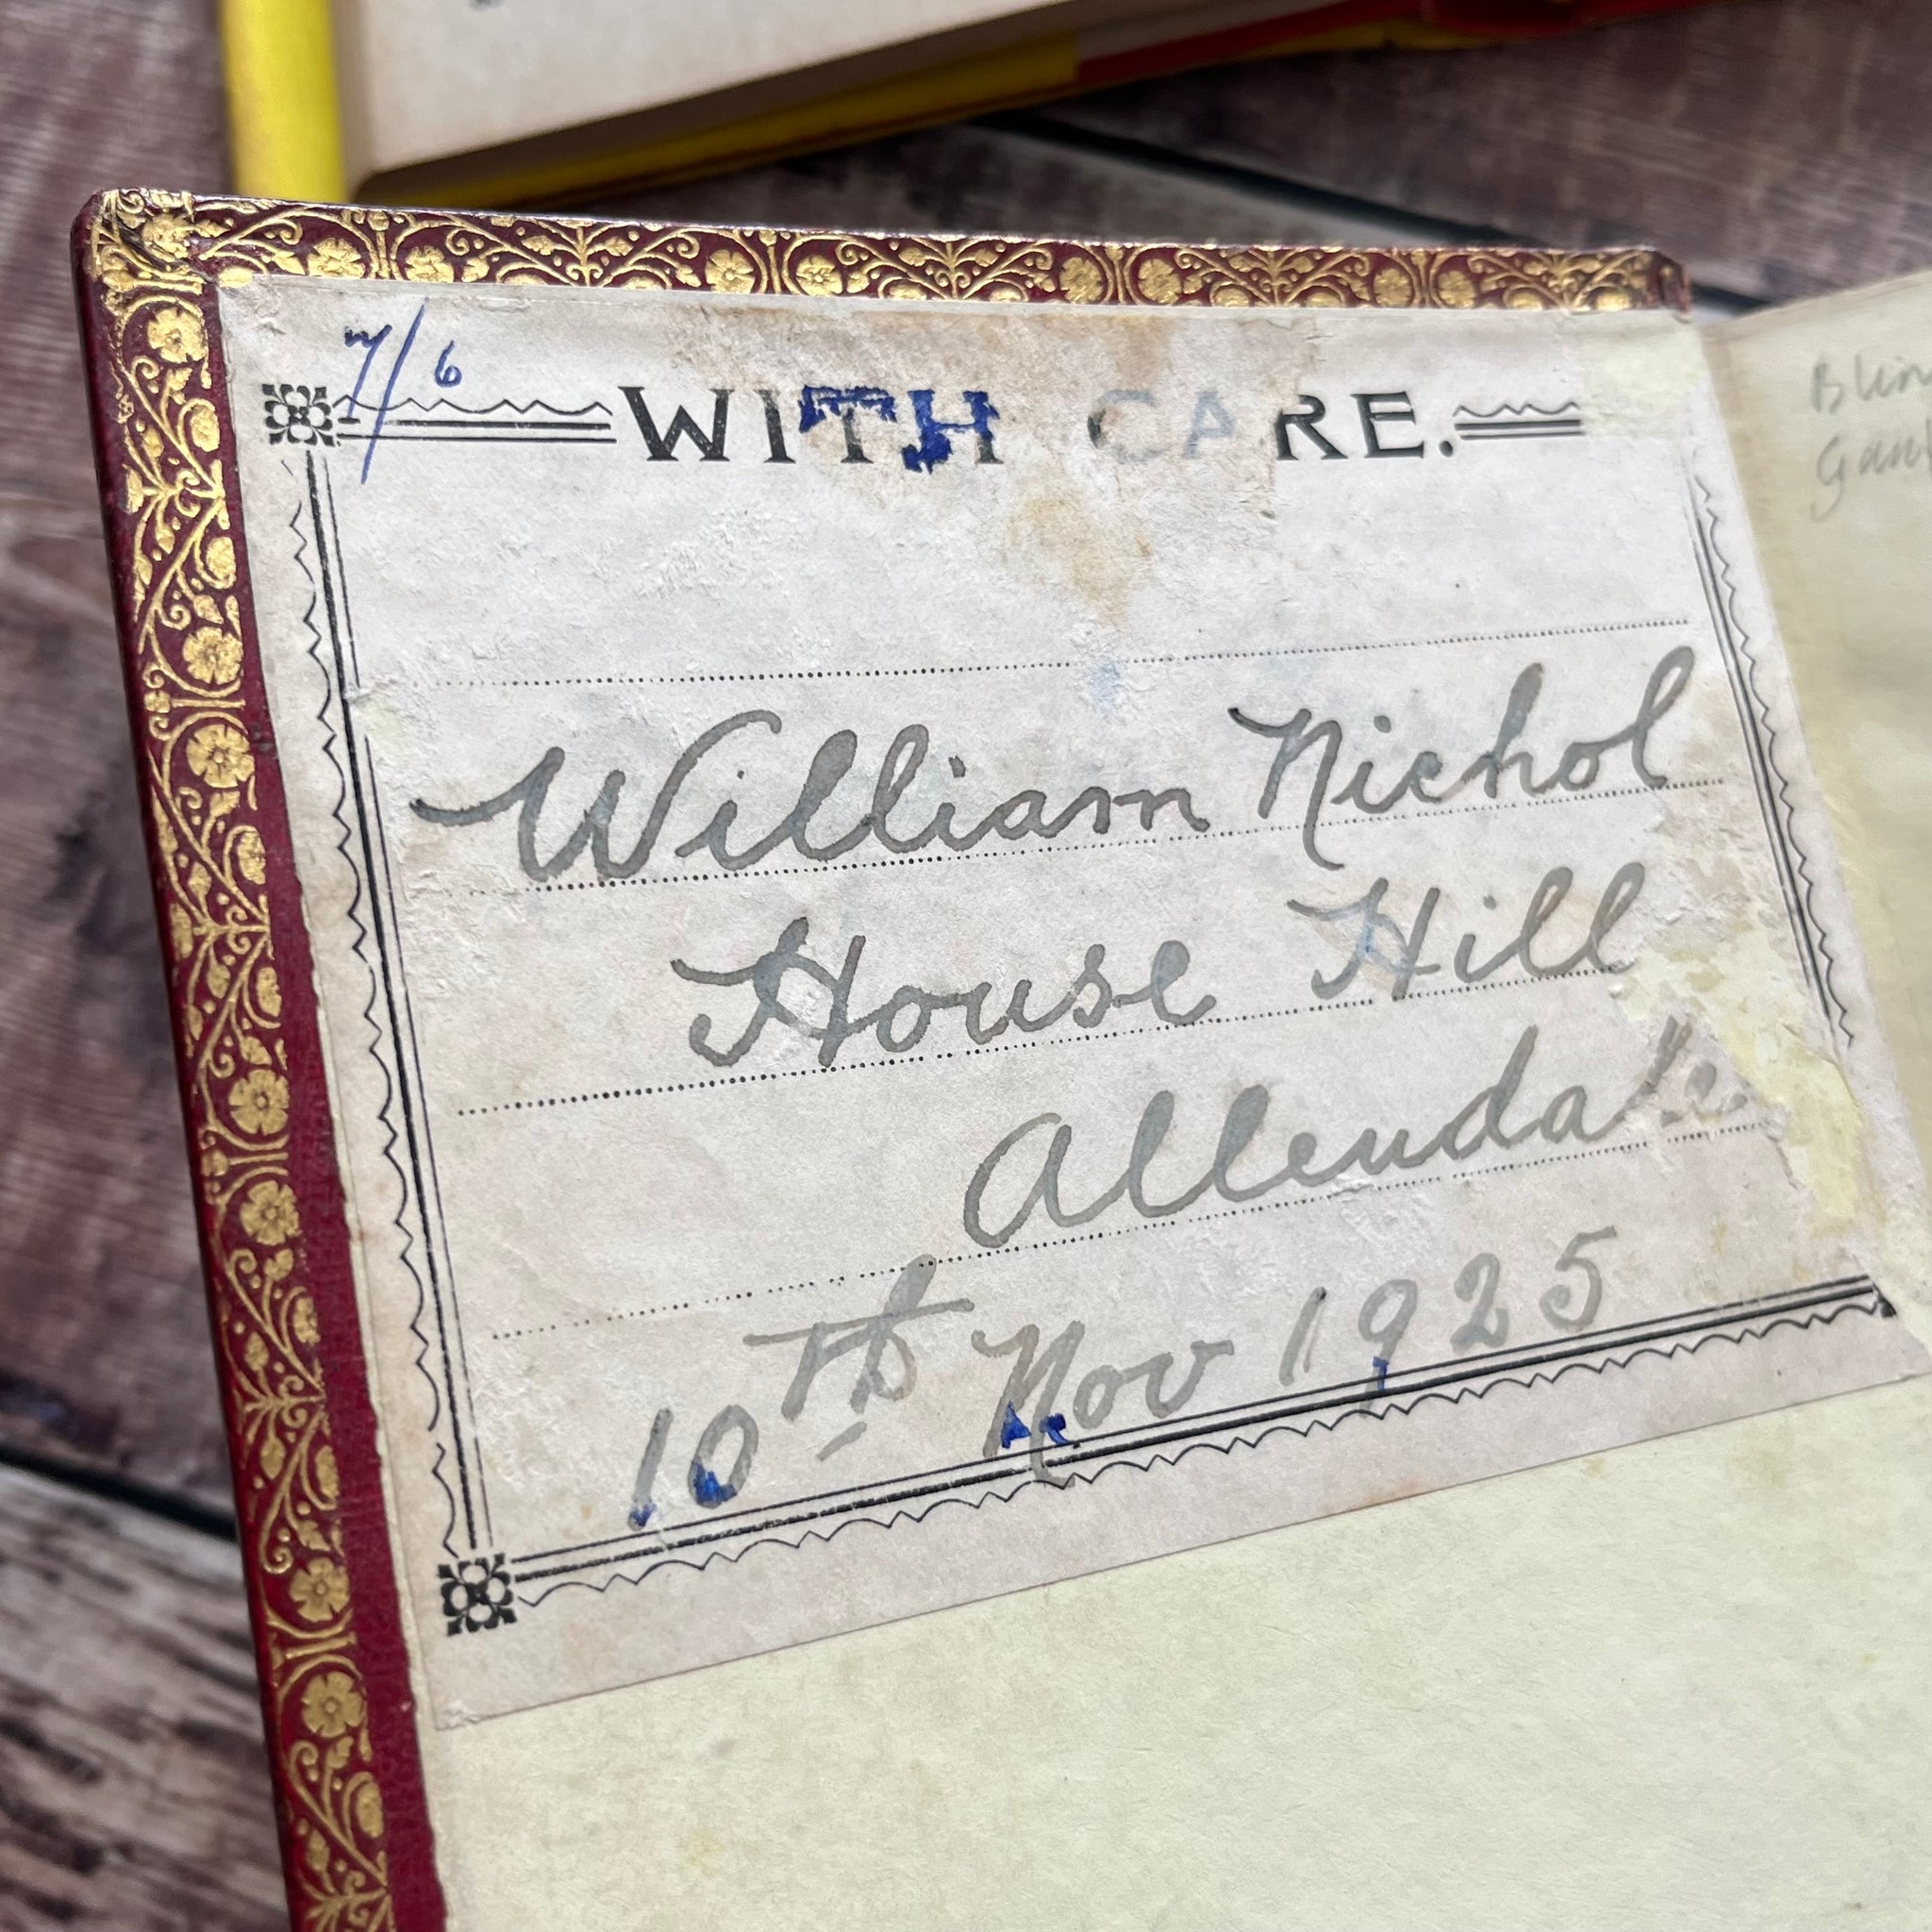 7/6
WITH CARE.
William Nichol
House Hill
Allendale
10th Nov 1925